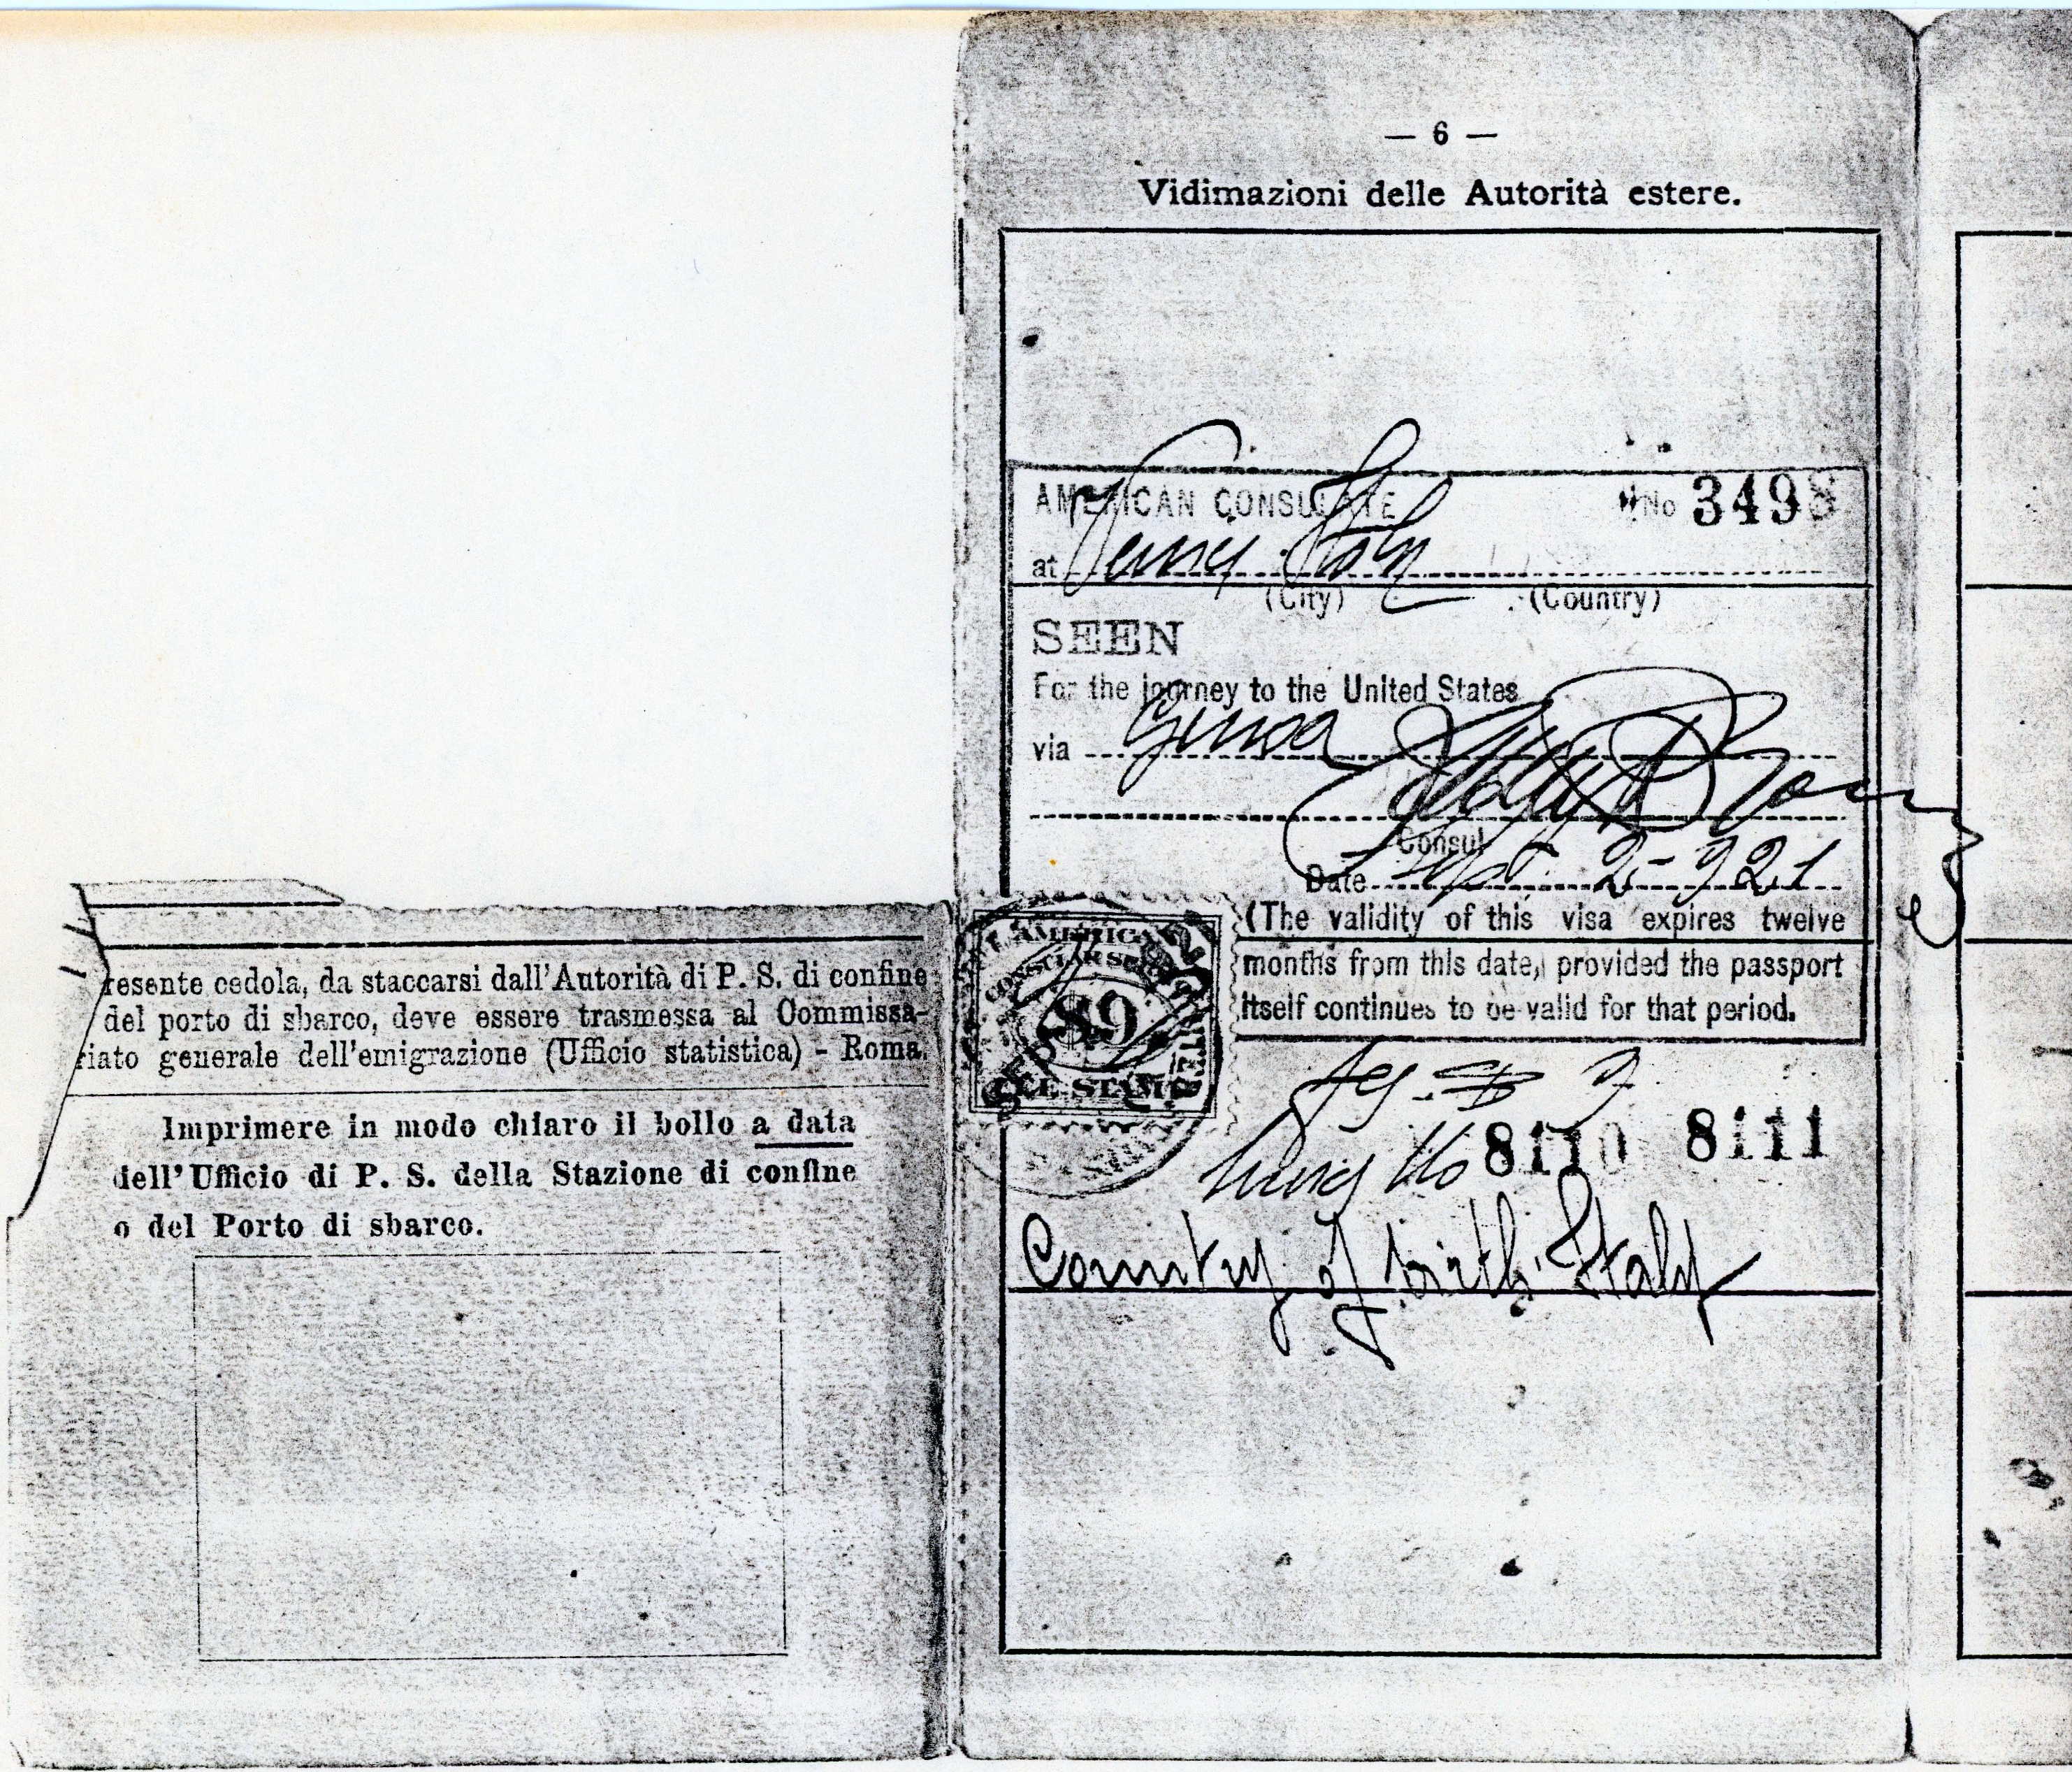 resente cedola, da staccarsi dall'Autorità di P. S. di confine
del porto di sbarco, deve essere trasmessa al Commissa-
riato generale dell'emigrazione (Ufficio statistica) - Roma.
Imprimere in modo chiaro il bollo a data
dell'Ufficio di P. S. della Stazione di confine
o del Porto di sbarco.
— 6 —
Vidimazioni delle Autorità estere.
AMERICAN CONSULATE No 3498
at Italy
(City) (Country)
SEEN
For the journey to the United States
via Genoa
Consul
Date Sept. 2- 921
(The validity of this visa expires twelve
months from this date, provided the passport
itself continues to be valid for that period.
AMERICAN
CONSULAR SERVICE
$9
FEE STAMP
No 8110 8111
Country of birth. Italy